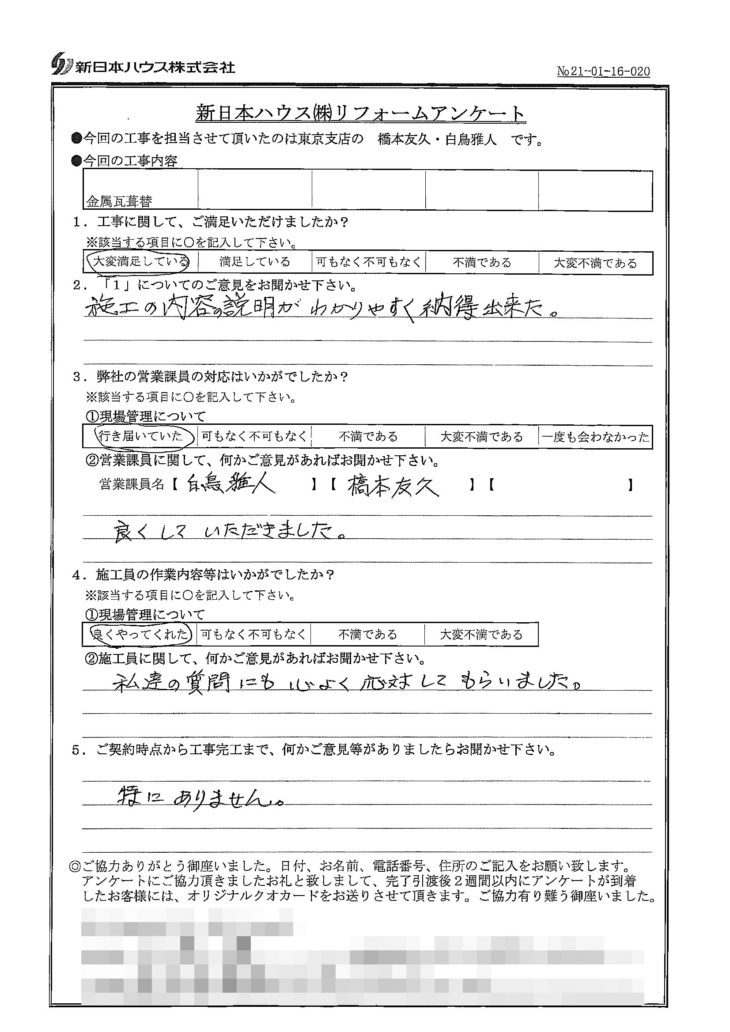 新日本ハウス株式会社
№21-01-16-020
新日本ハウス㈱リフォームアンケート
●今回の工事を担当させて頂いたのは東京支店の 橋本友久・白鳥雅人 です。
●今回の工事内容
金属瓦葺替
1．工事に関して、ご満足いただけましたか？
※該当する項目に○を記入して下さい。
大変満足している 満足している 可もなく不可もなく 不満である 大変不満である
2．「1」についてのご意見をお聞かせ下さい。
施工の内容の説明がわかりやすく納得出来た。
3．弊社の営業課員の対応はいかがでしたか？
※該当する項目に○を記入して下さい。
①現場管理について
行き届いていた 可もなく不可もなく 不満である 大変不満である 一度も会わなかった
②営業課員に関して、何かご意見があればお聞かせ下さい。
営業課員名【 白鳥雅人 】【 橋本友久 】【 】
良くしていただきました。
4．施工員の作業内容等はいかがでしたか？
※該当する項目に○を記入して下さい。
①現場管理について
良くやってくれた 可もなく不可もなく 不満である 大変不満である
②施工員に関して、何かご意見があればお聞かせ下さい。
私達の質問にも心よく応対してもらいました。
5．ご契約時点から工事完工まで、何かご意見等がありましたらお聞かせ下さい。
特にありません。
◎ご協力ありがとう御座いました。日付、お名前、電話番号、住所のご記入をお願い致します。
アンケートにご協力頂きましたお礼と致しまして、完了引渡後２週間以内にアンケートが到着
したお客様には、オリジナルクオカードをお送りさせて頂きます。ご協力有り難う御座いました。